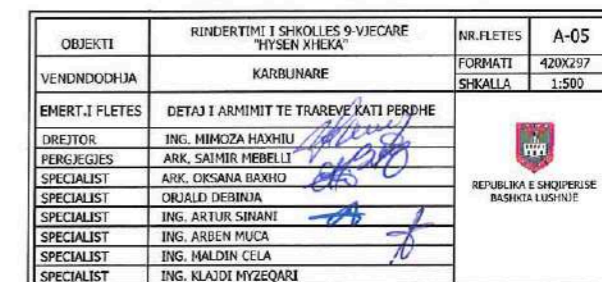 OBJEKTI
RINDERTIMI I SHKOLLES 9-VJECARE
"HYSEN XHEKA"
NR.FLETES
A-05
VENDNDODHJA
KARBUNARE
FORMATI
420X297
SHKALLA
1:500
EMERT.I FLETES
DETAJ I ARMIMIT TE TRAREVE KATI PERDHE
DREJTOR
ING. MIMOZA HAXHIU
PERGJEGJES
ARK. SAIMIR MEBELLI
SPECIALIST
ARK. OKSANA BAXHO
SPECIALIST
ORJALD DEBINJA
SPECIALIST
ING. ARTUR SINANI
SPECIALIST
ING. ARBEN MUCA
SPECIALIST
ING. MALDIN CELA
SPECIALIST
ING. KLAJDI MYZEQARI
REPUBLIKA E SHQIPERISE
BASHKIA LUSHNJË